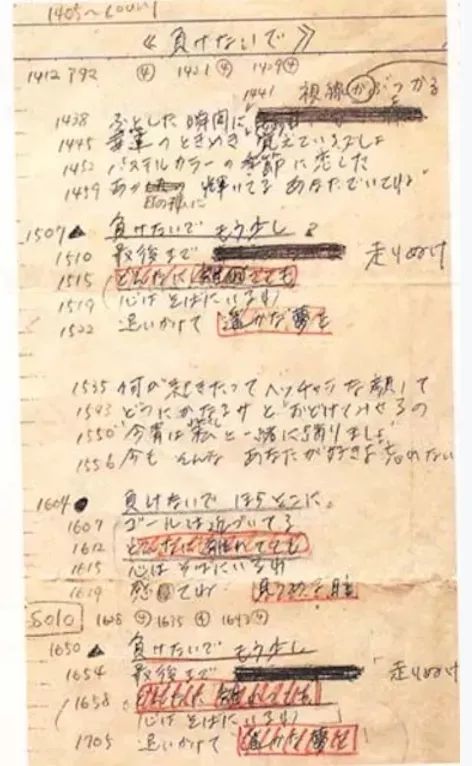 1405〜count
《負けないで》
1412 アタマ ④ 1421 ④ 1429 ④
1441 視線がぶつかる
1438 ふとした瞬間に
1445 幸運のときめき 覚えているでしょ
1452 パステルカラーの季節に恋した
1459 あの日の様に 輝いてる あなたでいてね
1507 ▲ 負けないで もう少し
1510 最後まで 走りぬけ
1515 どんなに 離れてても
1519 (心は そばにいるわ)
1522 追いかけて 遥かな夢を
1535 何が起きたって ヘッチャラな顔して
1543 どうにかなるサと おどけてみせるの
1550 "今宵は私と一緒に踊りましょ"
1556 今も そんな あなたが好きよ 忘れない
1604 ● 負けないで ほらそこに
1607 ゴールは近づいてる
1612 どんなに 離れてても
1615 心は そばにいるわ
1619 感じてね 見つめる瞳
SOLO 1628 ④ 1635 ④ 1642 ④
1650 ▲ 負けないで もう少し
1654 最後まで 走りぬけ
1658 どんなに 離れてても
(心は そばにいるわ)
1705 追いかけて 遥かな夢を